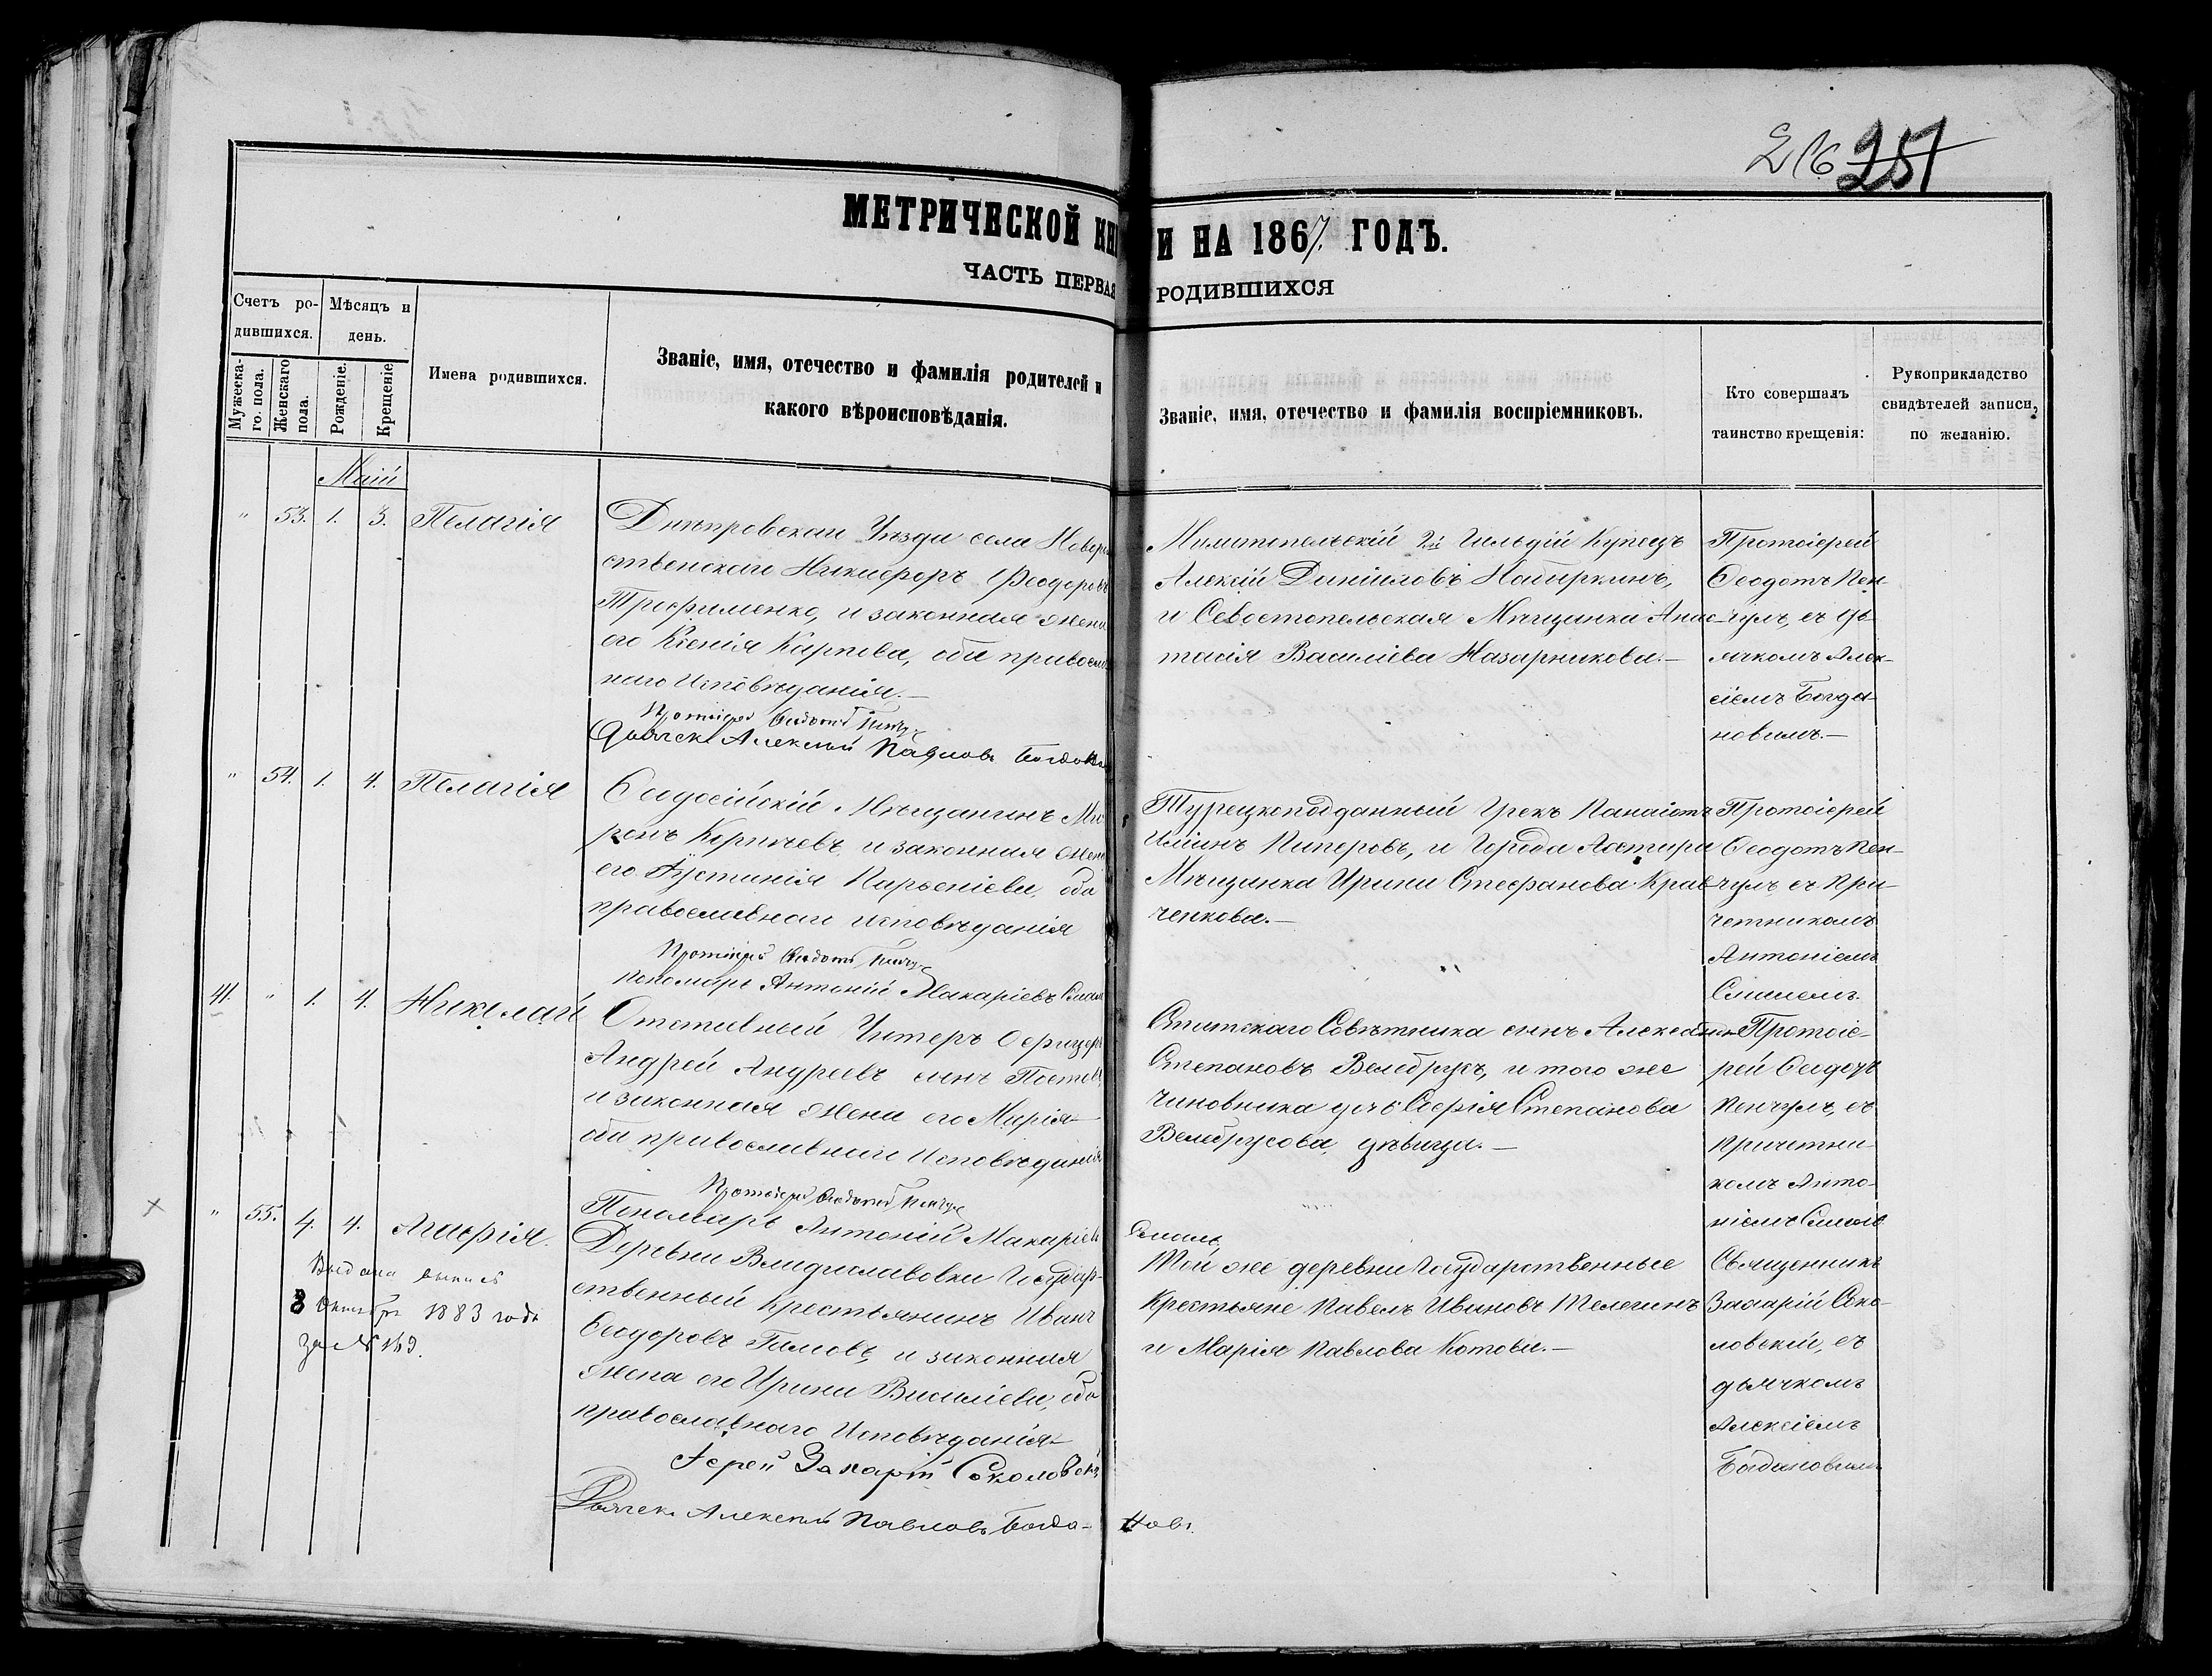 216 251
МЕТРИЧЕСКОЙ КНИ И НА 1867. ГОДЪ.
ЧАСТЬ ПЕРВАЯ РОДИВШИХСЯ
Счетъ ро-
дившихся.
Мѣсяцъ и
день.
Мужеска-
го. пола.
Женскаго
пола.
Рожденіе.
Крещеніе
Имена родившихся.
Званіе, имя, отечество и фамилія родителей и
какого вѣроисповѣданія.
Званіе, имя, отечество и фамилія воспріемниковъ.
Кто совершалъ
таинство крещенія:
Рукоприкладство
свидѣтелей записи,
по желанію.
Маій
" 53. 1. 3. Пелагія
Днѣпровскаго Уѣзда села
ственскаго Никифоръ Феодоровъ
Трефименко, и законная жена
его Ксенія Карпова, оба православ
наго Исповѣданія.—
Протоіерей Феодотъ Пенчул
Дьячекъ Алексѣй Павловъ Богдан
Мелитопельскій 2й Гильдій Купецъ
Алексѣй Даніиловъ
и Севостопельская Мѣщанка Анас-
тасія Василіева Назарникова.—
Протоіерей
Феодотъ Пен-
чулъ, съ дь-
ячкомъ Алек-
сіемъ Богда-
новимъ.—
" 54. 1. 4. Пелагія
Феодосійскій Мѣщанинъ Ми
ронъ Киричевъ и законная жена
его Іустинія Парѳеніева, оба
православнаго исповѣданія
Протоіерей Феодотъ Пенчул
Пономарь Антоній Макаріевъ Смаль
Турецкоподданный Грекъ Панаіотъ
Иліинъ Пиперовъ, и Города
Мѣщанка Ирина Стефанова Крав-
ченкова.—
Протоіерей
Феодотъ Пен-
чулъ съ При-
четникомъ
Антоніемъ
Смалемъ.
41. " 1. 4. Николай
Отставный Унтеръ Офицеръ
Андрей Андреевъ сынъ
и законная жена его Марія
оба православнаго Исповѣданія
Протоіерей Феодотъ Пенчул
Пономарь Антоній Макаріевъ
Смаль
Статскаго Совѣтника сынъ Александръ
Степановъ Велибрусъ, и того же
чиновника дочь Софія Степанова
Велибрусова, дѣвица.—
Протоіе-
рей Феодотъ
Пенчулъ, съ
причетни-
комъ Анто-
ніемъ Смалемъ
" 55. 4. 4. Агафія.
Выдана выпись
8 Октября 1883 года
за № 169.
Деревни Владиславовки Государ-
ственный Крестьянинъ Иванъ
Феодоровъ Гамовъ, и законная
жена его Ирина Василіева, оба
православнаго Исповѣданія
Іерей Захарій Соколовскій
Дьячекъ Алексѣй Павловъ Богда- новъ.
Той же деревни Государственные
Крестьяне Павелъ Ивановъ Телегинъ
и Марія Павлова Котова.—
Священникъ
Захарій Соко-
ловскій, съ
дьячкомъ
Алексіемъ
Богдановымъ